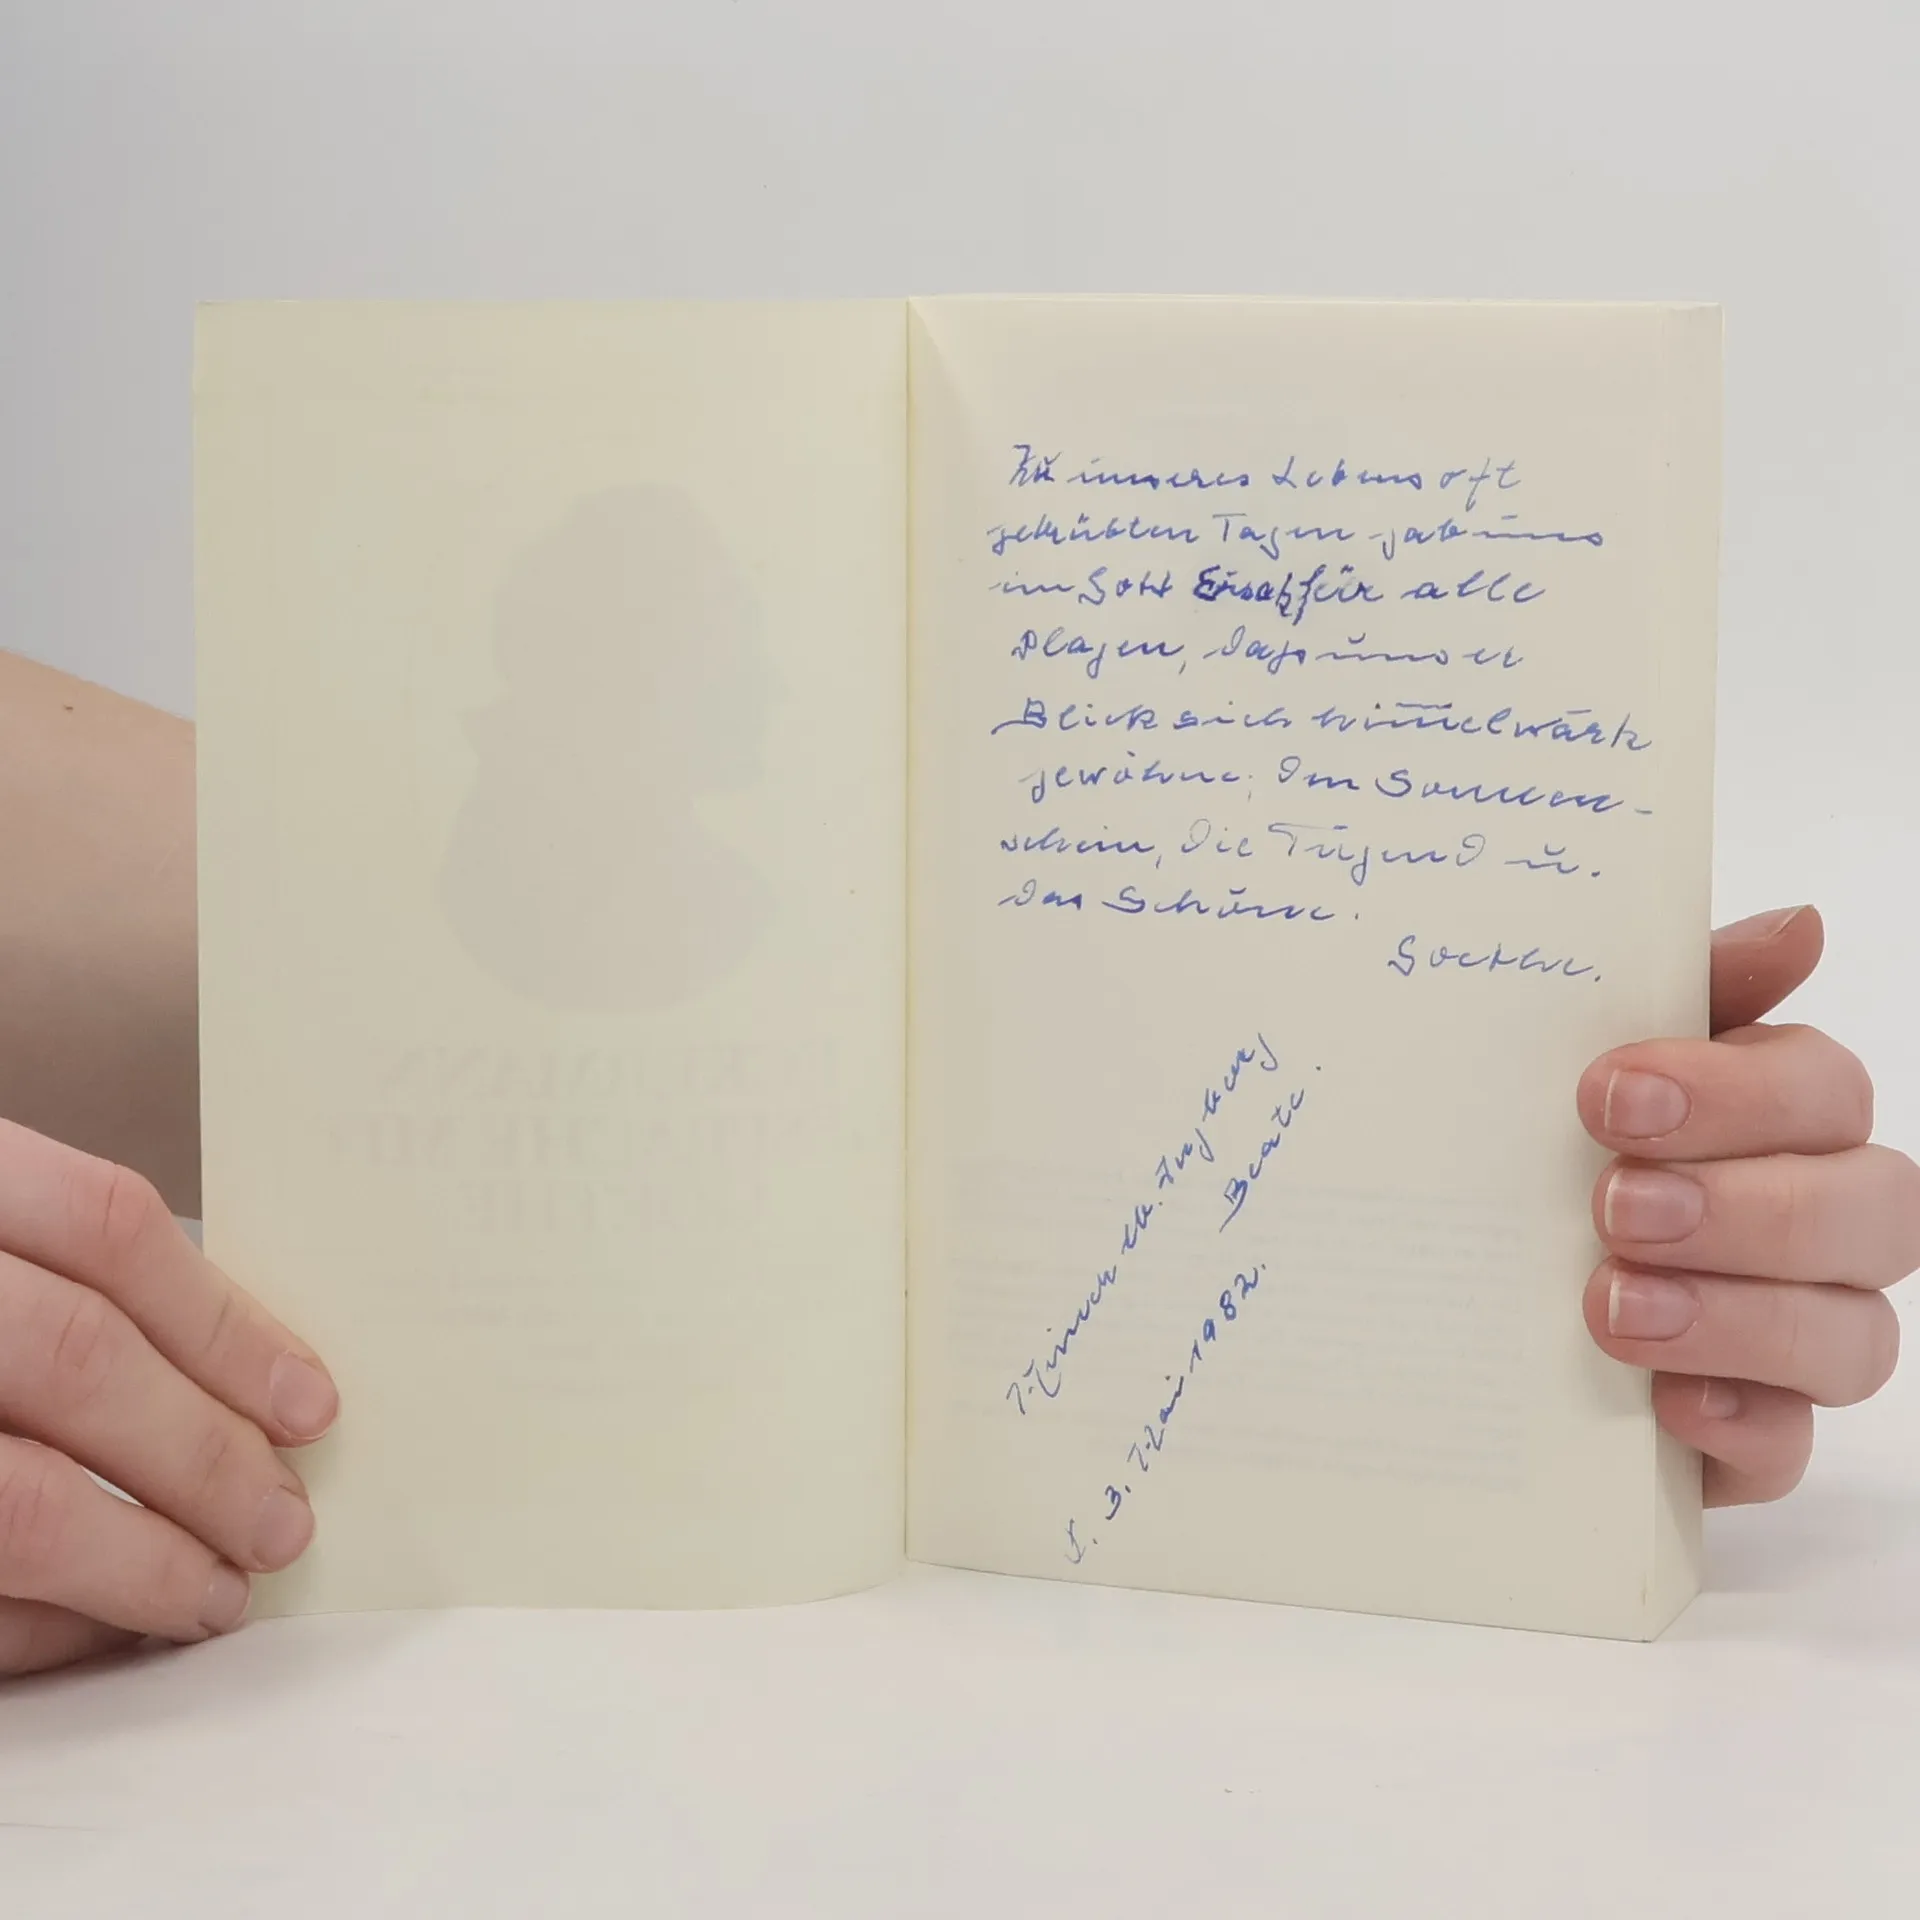 Zu unseres Lebens oft
getrübten Tagen gab uns
ein Gott Ersatz für alle
Plagen, daß unser
Blick sich him̅elwärts
gewöhne, Den Sonnen-
schein, die Tugend u.
das Schöne.
Goethe.
Beate.
d. 3. Mai 1982.